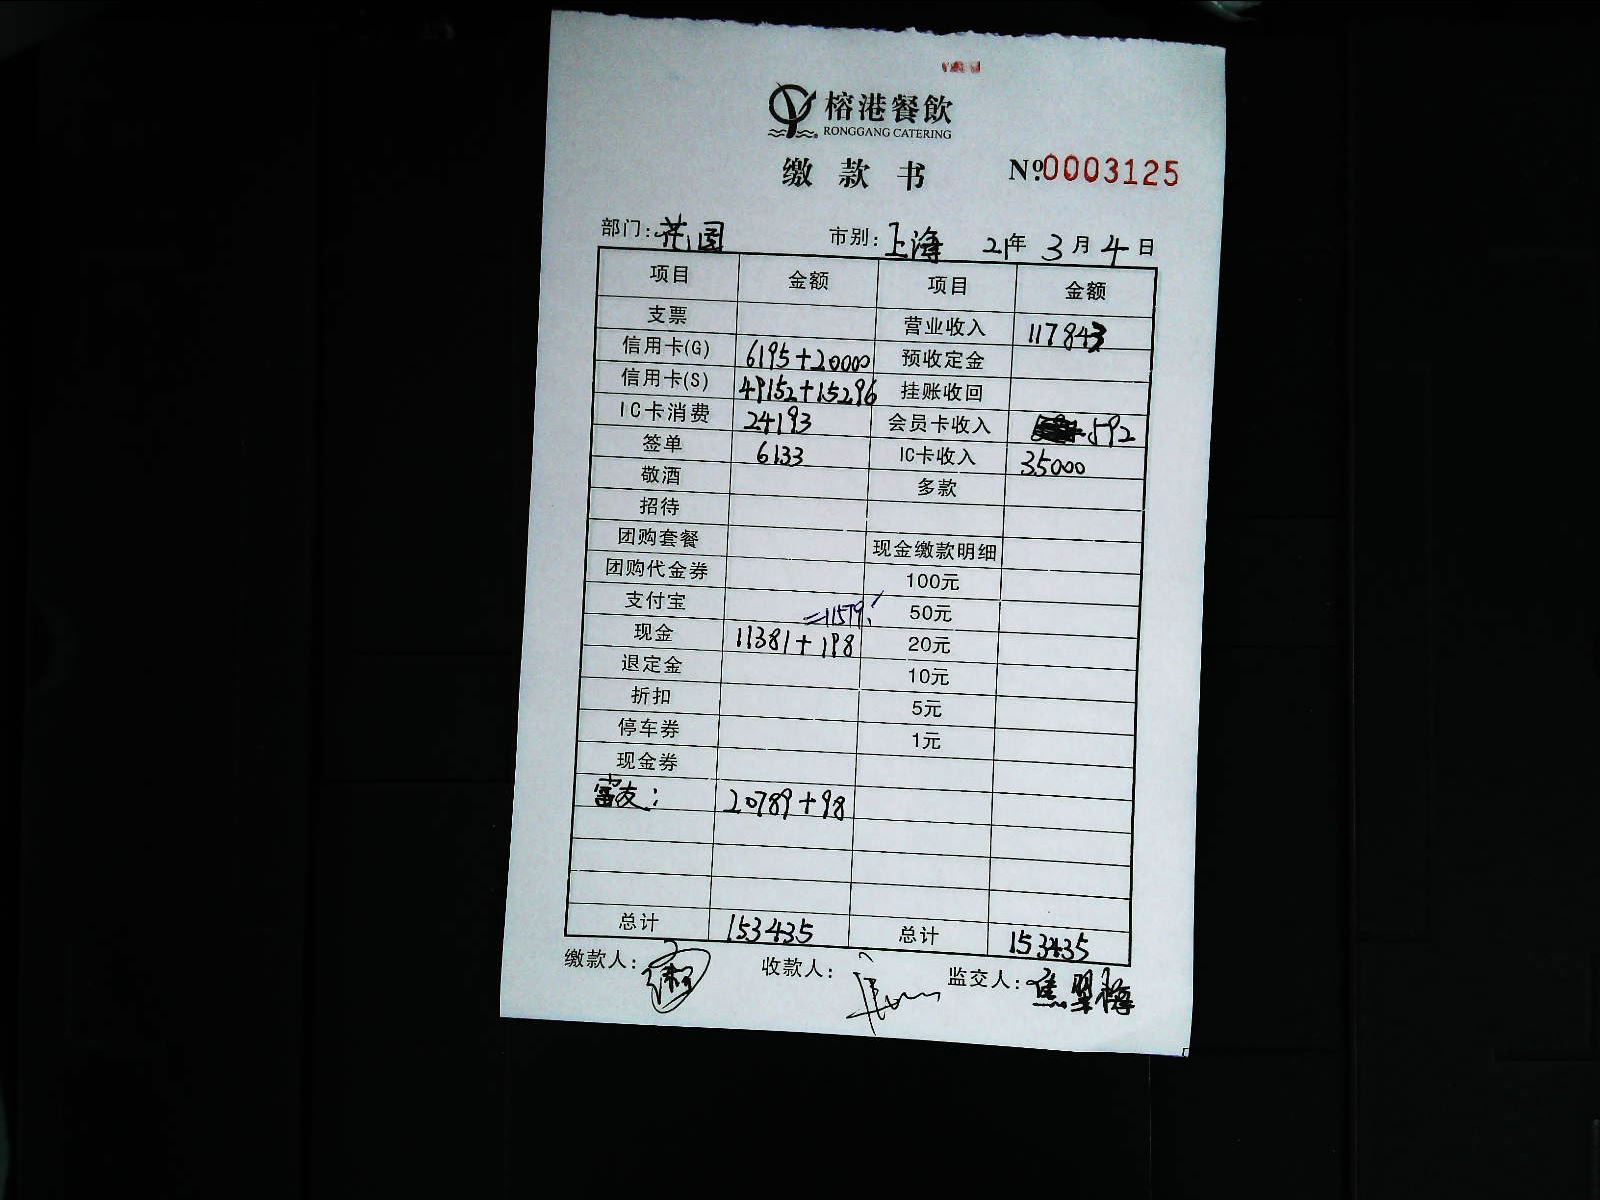 榕港餐飲
RONGGANG CATERING
缴款书 Nº0003125
部门: 花园 市别: 上海 21年 3月 4日
项目 金额 项目 金额
支票 营业收入 117843
信用卡(G) 6195+20000 预收定金
信用卡(S) 49152+15296 挂账收回
IC卡消费 24193 会员卡收入 592
签单 6133 IC卡收入 35000
敬酒 多款
招待
团购套餐 现金缴款明细
团购代金券 100元
支付宝 =11579 50元
现金 11381+198 20元
退定金 10元
折扣 5元
停车券 1元
现金券
20789+98
总计 153435 总计 153435
缴款人: 收款人: 监交人: 焦翠梅